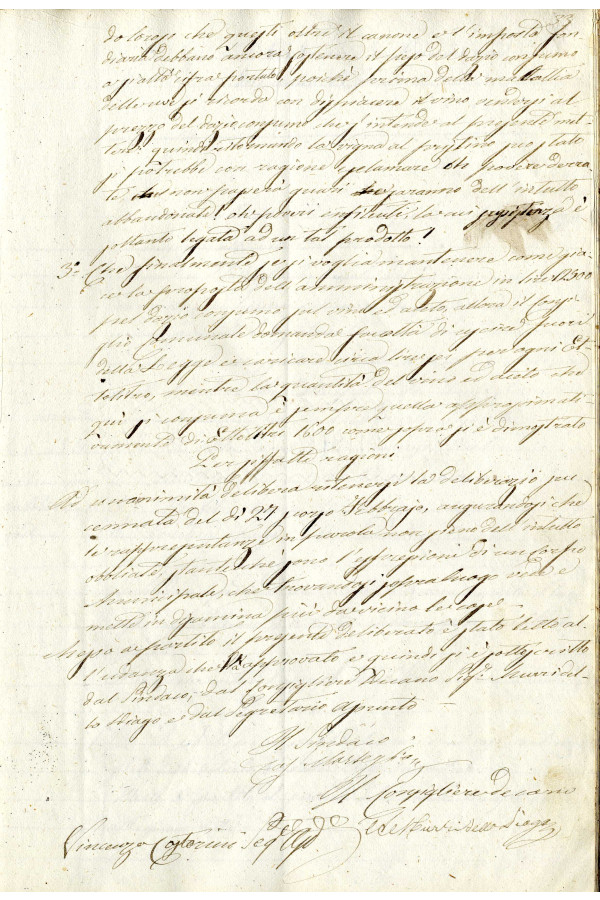 53
do loro che questi oltre il canone e l'imposta fon-
diaria debbano ancora sostenere il peso del dazio consumo
a siatta cifra portato, poichè prima della malattia
delle uve si ricorda con dispiacere il vino vendersi al
prezzo del dazio consumo che s'intende al presente met-
tere: quindi ritornando la vigna al pristino suo stato
si potrebbe con ragione esclamare oh povere derra-
te, non saprei quasi se saranno dell'intutto
abbandonate! oh poveri la cui sussistenza è
soltanto legata ad un tal prodotto!
3º Che finalmente se si voglia mantenere come già
la proposta dell'amministrazione in lire 12500
pel dazio consumo sul vino ed aceto, allora il Consi-
glio Comunale domanda facoltà di uscire fuori
della Legge e caricare circa lire per ogni Et-
tolitro, mentre la quantità del vino ed aceto che
qui si consuma è sempre quella approssimati-
vamente di Ettolitri 1600 come sopra si è dimostrato
Per siffatte ragioni
Ad unanimità delibera ritenersi la deliberazio su-
cennata del dì 27 scorso Febbrajo, augurandosi che
le rappresentanze in parola non siano dell'intutto
obliate, stante chè sono l'espressioni di un Corpo
Municipale, che trovandosi sopra luogo vede e
mette in disamina più da vicino le cose
Messo a partito il presente deliberato è stato letto al-
l'adunanza che l'à approvato e quindi si è sottoscritto
dal Sindaco, dal Consigliere Decano Sigr. Muri del-
lo Diago e dal Segretario assunto
Il Sindaco
Il Consigliere decano
Vincenzo Segr.